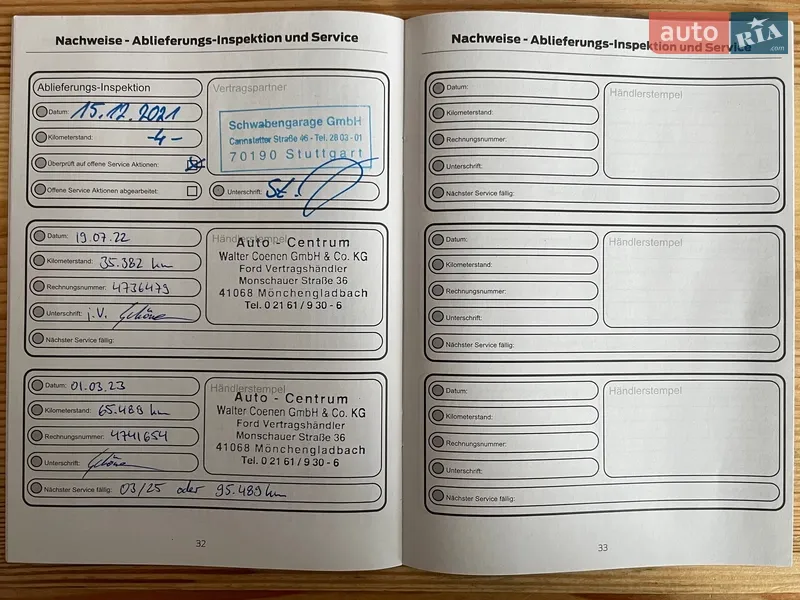 Nachweise - Ablieferungs-Inspektion und Service
Ablieferungs-Inspektion
Datum: 15.12.2021
Kilometerstand: -4-
Überprüft auf offene Service Aktionen:
Offene Service Aktionen abgearbeitet:
Vertragspartner
Schwabengarage GmbH
Cannstatter Straße 46 - Tel. 28 03 - 01
70190 Stuttgart
Unterschrift:
Datum: 19.07.22
Kilometerstand: 35.382 km
Rechnungsnummer: 4736479
Unterschrift: i.V.
Nächster Service fällig:
Händlerstempel
Auto - Centrum
Walter Coenen GmbH & Co. KG
Ford Vertragshändler
Monschauer Straße 36
41068 Mönchengladbach
Tel. 0 21 61 / 9 30 - 6
Datum: 01.03.23
Kilometerstand: 65.489 km
Rechnungsnummer: 4741654
Unterschrift:
Nächster Service fällig: 03/25 oder 95.489 km
Händlerstempel
Auto - Centrum
Walter Coenen GmbH & Co. KG
Ford Vertragshändler
Monschauer Straße 36
41068 Mönchengladbach
Tel. 0 21 61 / 9 30 - 6
32
Nachweise - Ablieferungs-Inspektion und Service
Datum:
Kilometerstand:
Rechnungsnummer:
Unterschrift:
Nächster Service fällig:
Händlerstempel
Datum:
Kilometerstand:
Rechnungsnummer:
Unterschrift:
Nächster Service fällig:
Händlerstempel
Datum:
Kilometerstand:
Rechnungsnummer:
Unterschrift:
Nächster Service fällig:
Händlerstempel
33
auto RIA .com